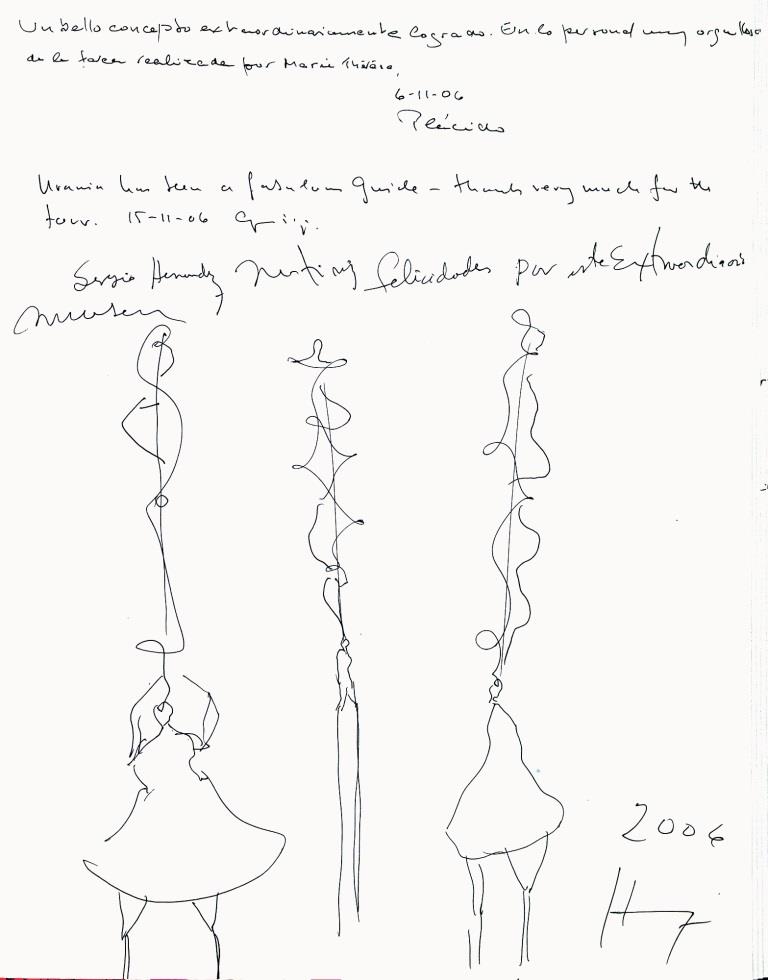 Un bello concepto extraordinariamente logrado. En lo personal muy orgulloso
de la tarea realizada por Marie Thérèse,
6-11-06
Plácido
Urania has been a fabulous guide - thanks very much for the
tour. 15-11-06
Sergio Hernandez felicidades por este Extraordinario
museo
2006